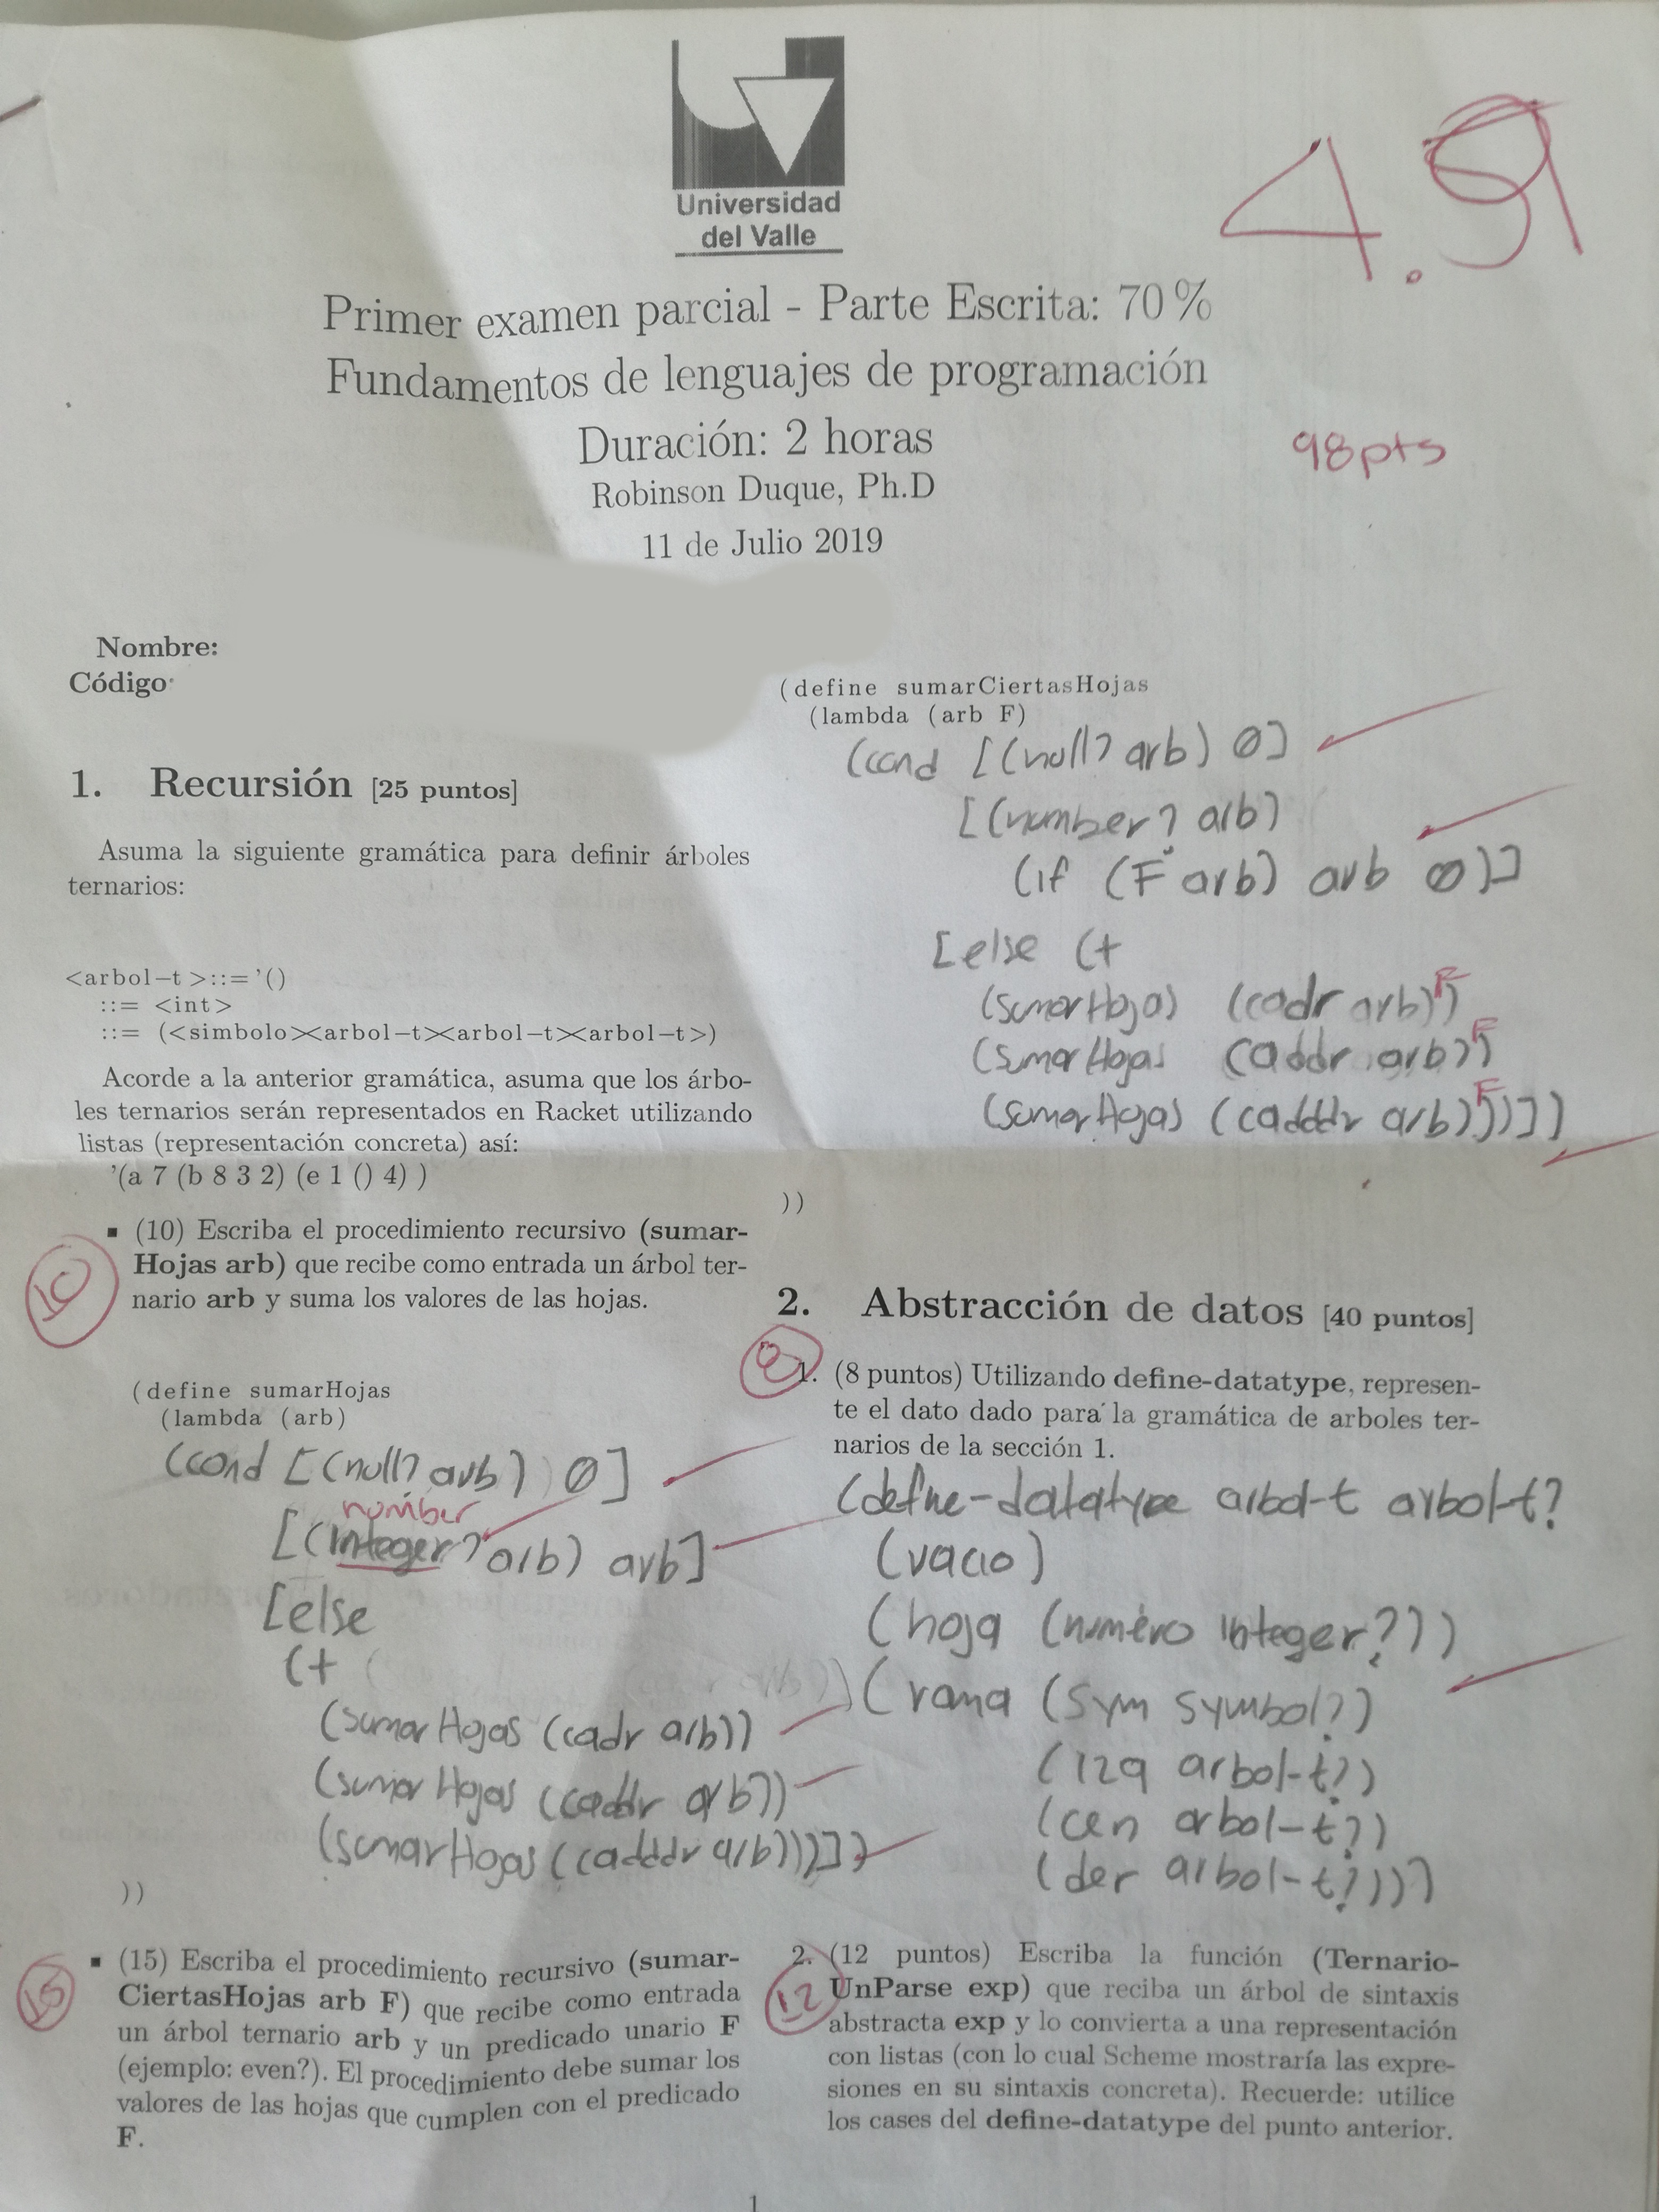 Universidad
del Valle
4.9
Primer examen parcial - Parte Escrita: 70 %
Fundamentos de lenguajes de programación
Duración: 2 horas
98pts
Robinson Duque, Ph.D
11 de Julio 2019
Nombre:
Código
1. Recursión [25 puntos]
Asuma la siguiente gramática para definir árboles
ternarios:
<arbol-t>::='()
::= <int>
::= (<simbolo><arbol-t><arbol-t><arbol-t>)
Acorde a la anterior gramática, asuma que los árbo-
les ternarios serán representados en Racket utilizando
listas (representación concreta) así:
'(a 7 (b 8 3 2) (e 1 () 4) )
10
▪ (10) Escriba el procedimiento recursivo (sumar-
Hojas arb) que recibe como entrada un árbol ter-
nario arb y suma los valores de las hojas.
(define sumarHojas
(lambda (arb)
(cond [(null? arb) 0]
number
[(integer? arb) arb]
[else
(+
(sumarHojas (cadr arb))
(sumarHojas (caddr arb))
(sumarHojas (cadddr arb)))])
))
15
▪ (15) Escriba el procedimiento recursivo (sumar-
CiertasHojas arb F) que recibe como entrada
un árbol ternario arb y un predicado unario F
(ejemplo: even?). El procedimiento debe sumar los
valores de las hojas que cumplen con el predicado
F.
(define sumarCiertasHojas
(lambda (arb F)
(cond [(null? arb) 0]
[(number? arb)
(if (F arb) arb 0)]
[else (+
(sumarHojas (cadr arb) F)
(sumarHojas (caddr arb) F)
(sumarHojas (cadddr arb) F))])
))
2. Abstracción de datos [40 puntos]
8
1. (8 puntos) Utilizando define-datatype, represen-
te el dato dado para la gramática de arboles ter-
narios de la sección 1.
(define-datatype arbol-t arbol-t?
(vacio)
(hoja (numero integer?))
(rama (sym symbol?)
(izq arbol-t?)
(cen arbol-t?)
(der arbol-t?)))
12
2. (12 puntos) Escriba la función (Ternario-
UnParse exp) que reciba un árbol de sintaxis
abstracta exp y lo convierta a una representación
con listas (con lo cual Scheme mostraría las expre-
siones en su sintaxis concreta). Recuerde: utilice
los cases del define-datatype del punto anterior.
1